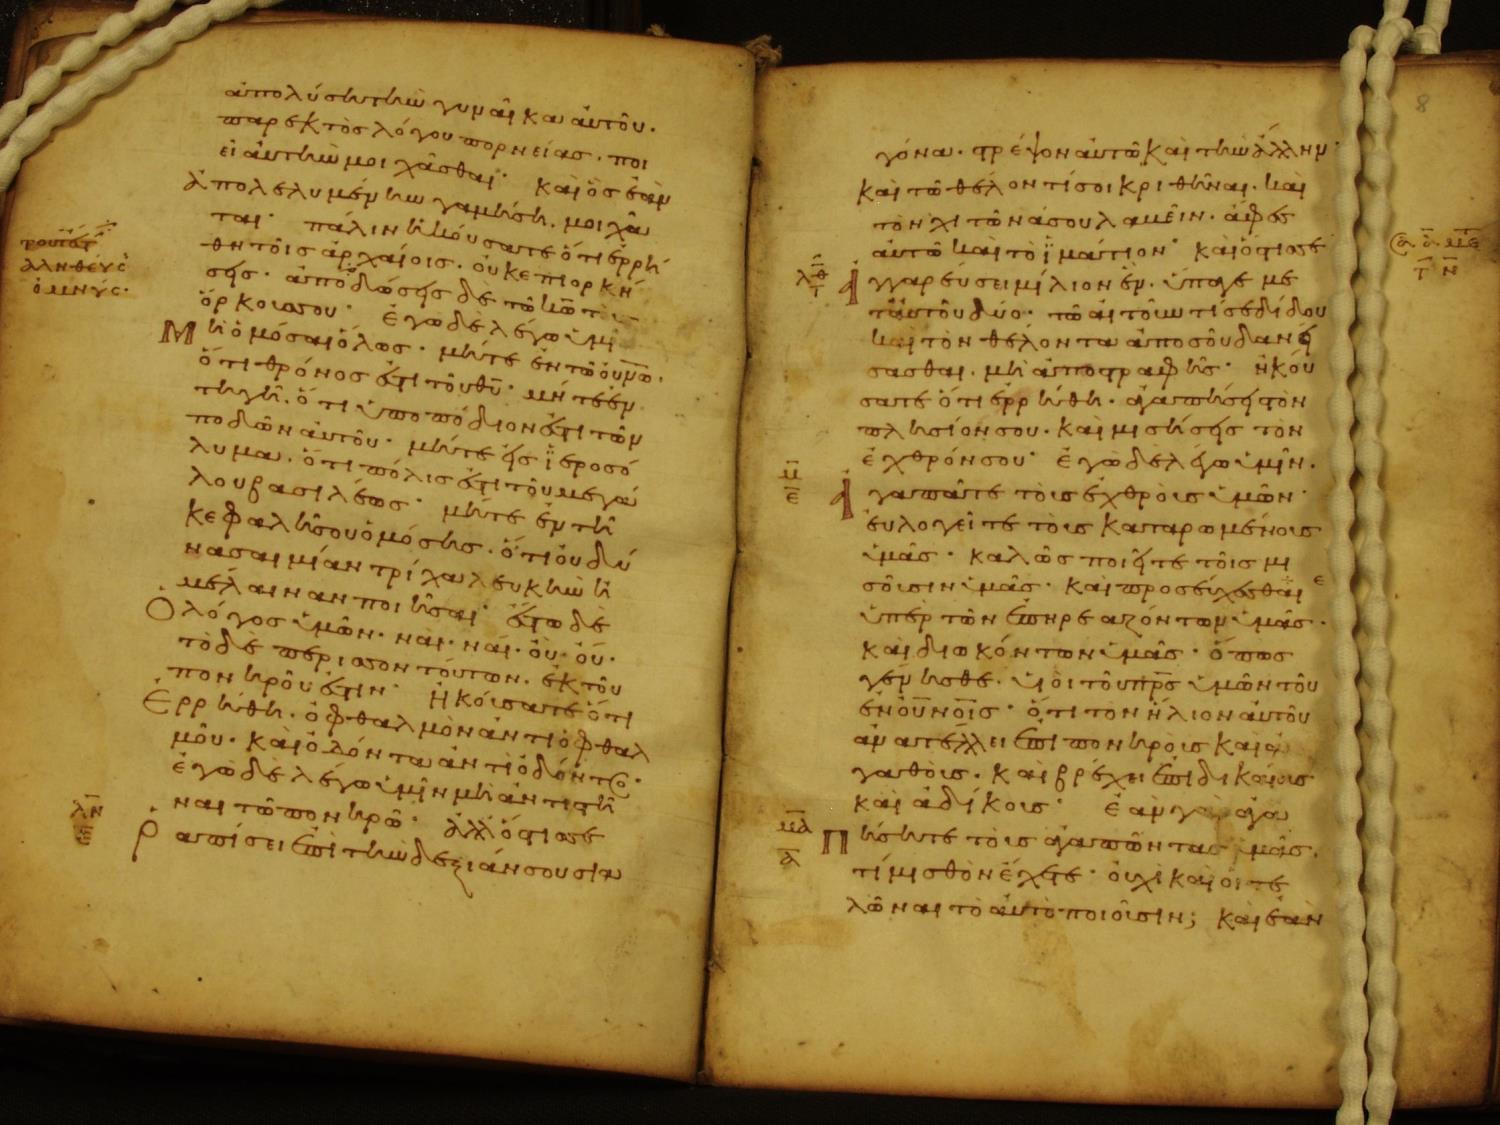 ἀπολύσητὴν γυναῖκα αὐτοῦ.
παρεκτὸς λόγου πορνείας. ποι
εῖ αὐτὴν μοιχᾶσθαι· καὶ ὃς ἐὰν
ἀπολελυμένην γαμήσῃ. μοιχᾶ
ται· πάλιν ἠκούσατε ὅτι ἐρρή
θη τοῖς ἀρχαίοις. οὐκ ἐπιορκή
σῃς· ἀποδώσῃς δὲ τῶ κῶ τ
ὅρκους σου· ἐγὼ δὲ λέγω ὑμῖ
Μὴ ὀμόσαι ὅλως· μήτε ἐν τῶ οὐνῶ.
ὅτι θρόνος ἐστὶ τοῦ θῦ· μήτε ἐν
τῆ γῆ. ὅτι ὑποπόδιον ἐστὶ τῶν
ποδῶν αὐτοῦ· μήτε εἰς ἱεροσό
λυμα. ὅτι πόλις ἐστὶ τοῦ μεγά
λου βασιλέως· μήτε ἐν τῆ
κεφαλῆ σου ὀμόσης. ὅτι οὐ δύ
νασαι μίαν τρίχα λευκὴν ἢ
μέλαιναν ποιῆσαι· ἔστω δὲ
Ὁ λόγος ὑμῶν. ναὶ. ναί. οὒ. οὔ.
τὸ δὲ περισσον τούτων. ἐκ τοῦ
πονηροῦ ἐστιν· Ἠκούσατε ὅτι
Ἐρρήθη. ὀφθαλμὸν ἀντὶ ὀφθαλ
μοῦ. καὶ ὀδόντα ἀντὶ ὀδόντος.
ἐγὼ δὲ λέγω ὑμῖν μὴ ἀντιστῆ
ναι τῶ πονηρῶ· ἀλλ' ὅστις σε
Ῥαπίσει ἐπὶ τὴν δεξιάν σου σια
λη
ε
γόνα. στρέψον αὐτῶ καὶ τὴν ἄλλην·
καὶ τῶ θέλοντί σοι κριθῆναι. καὶ
τὸν χιτῶνά σου λαβεῖν. ἄφες
αὐτῶ καὶ τὸ ἱμάτιον· καὶ ὅστις σε
Ἀγγαρεύσει μίλιον ἕν. ὕπαγε με
τ' αὐτοῦ δύο. τῶ αἰτοῦντί σε δίδου
καὶ τὸν θέλοντα ἀπο σοῦ δανεί
σασθαι. μὴ ἀποστραφῆς· ἠκού
σατε ὅτι ἐρρήθη. ἀγαπήσεις τὸν
πλησίον σου. καὶ μισήσεις τὸν
ἐχθρόν σου· ἐγὼ δὲ λέγω ὑμῖν.
Ἀγαπᾶτε τοὺς ἐχθροὺς ὑμῶν·
εὐλογεῖτε τοὺς καταρωμένους
ὑμᾶς· καλῶς ποιεῖτε τοῖς μι
σοῦσιν ὑμᾶς· καὶ προσεύχεσθαι
ὑπὲρ τῶν ἐπηρεαζόντων ὑμᾶς.
καὶ διωκόντων ὑμᾶς· ὅπως
γένησθε. υἱοὶ τοῦ πρς ὑμῶν τοῦ
ἐν οὐνοῖς· ὅτι τὸν ἥλιον αὐτοῦ
ἀνατέλλει ἐπὶ πονηροὺς καὶ ἀ
γαθοὺς. καὶ βρέχει ἐπὶ δικαίους
καὶ ἀδίκους· ἐὰν γὰρ ἀγα
Πήσητε τοὺς ἀγαπῶντας ὑμᾶς.
τί μισθὸν ἔχετε· οὐχὶ καὶ οἱ τε
λῶναι τὸ αὐτὸ ποιοῦσιν; καὶ ἐὰν
λθ
μ
ε
μα
8